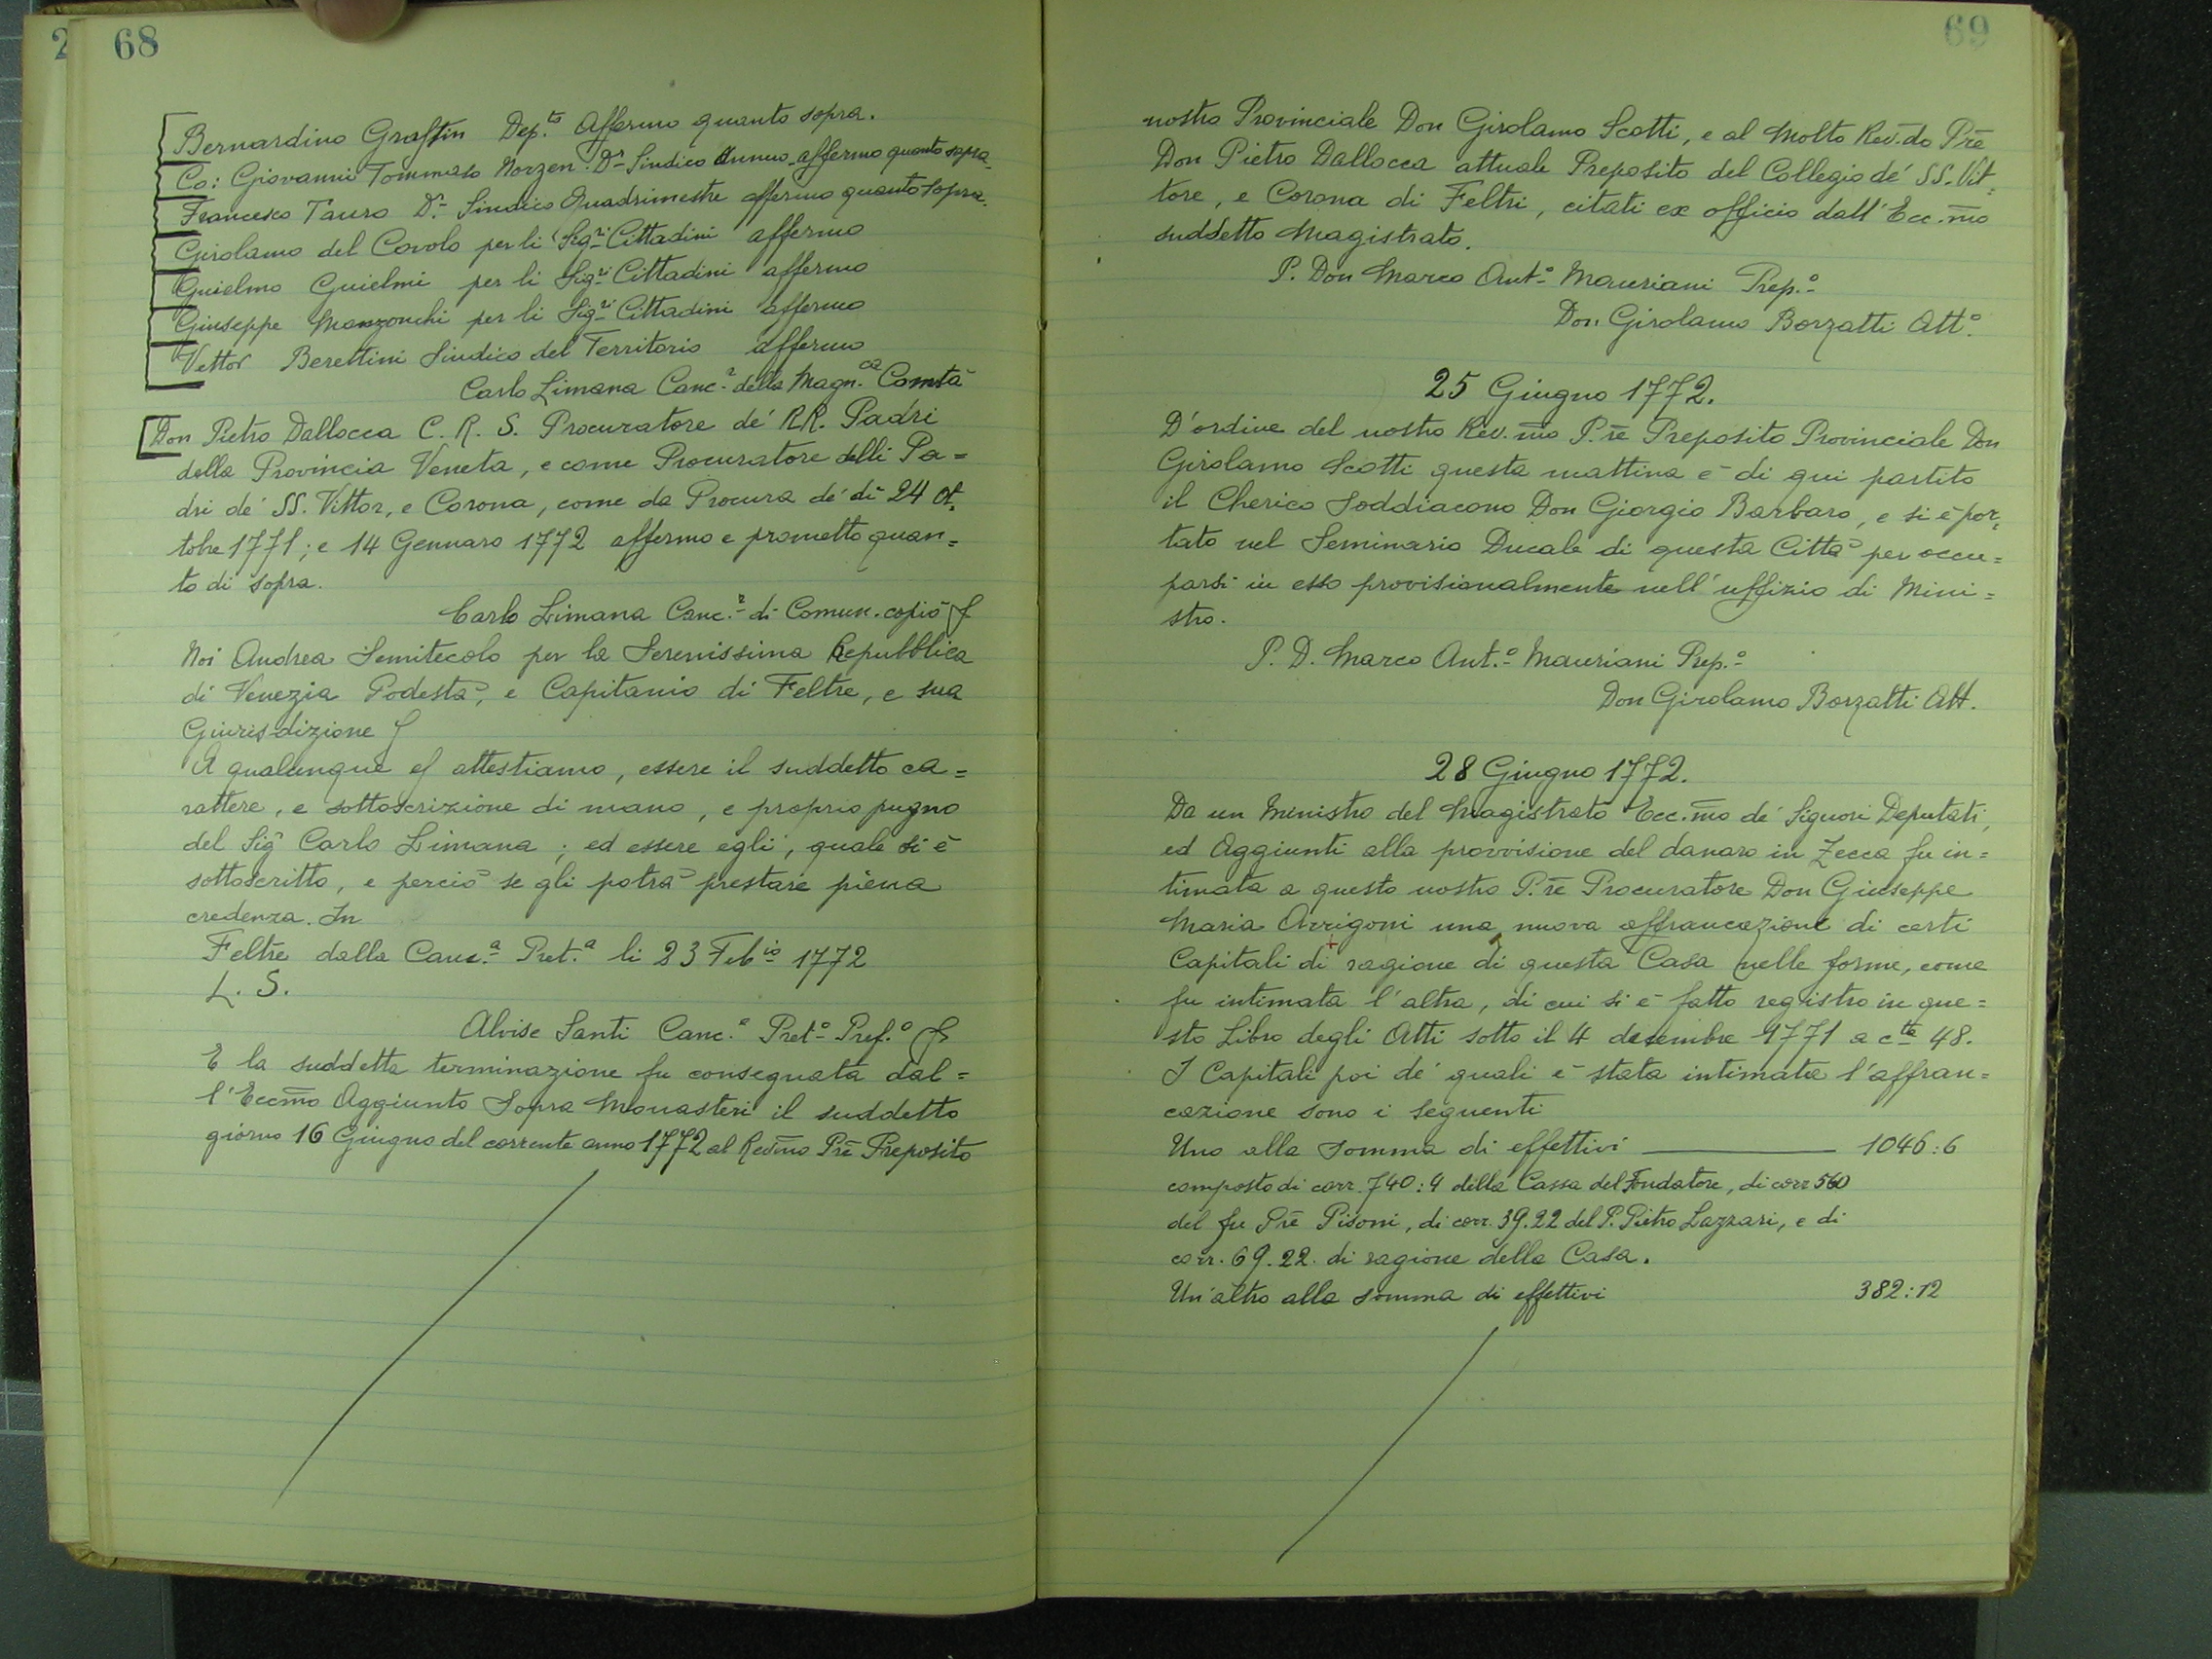 2
68
Bernardino Graftin Dep.to Affermo quanto sopra.
Co: Giovanni Tommaso Norzen Dr Sindico Annuo affermo quanto sopra
Francesco Tauro Dr. Sindico Quadrimestre affermo quanto sopra.
Girolamo del Covolo per li Sigri Cittadini affermo
Guielmo Guielmi per li Sigri Cittadini affermo
Giuseppe Manzonchi per li Sigri Cittadini affermo
Vettor Berettini Sindico del Territorio affermo
Carlo Limana Canc.r della Magn.ca Comtà
Don Pietro Dallocca C. R. S. Procuratore de' RR. Padri
della Provincia Veneta, e come Procuratore delli Pa=
dri de' SS. Vittor, e Corona, come da Procura de' dì 24 ot.
tobre 1771; e 14 Gennaro 1772 affermo e prometto quan=
to di sopra.
Carlo Limana Canc.r di Comun. copiò
Noi Andrea Semitecolo per la Serenissima Repubblica
di Venezia Podestà, e Capitanio di Feltre, e sua
Giurisdizione
A qualunque attestiamo, essere il suddetto ca=
rattere, e sottoscrizione di mano, e proprio pugno
del Sigr Carlo Limana; ed essere egli, quale si è
sottoscritto, e perciò se gli potrà prestare piena
credenza. In
Feltre dalla Canc.a Pret.a li 23 Febio 1772
L. S.
Alvise Santi Canc.e Pret.o Pref.o
E la suddetta terminazione fu consegnata dal=
l'Eccmo Aggiunto Sopra Monasteri il suddetto
giorno 16 Giugno del corrente anno 1772 al Revmo Pre Preposito
69
nostro Provinciale Don Girolamo Scotti, e al Molto Rev.do Pre
Don Pietro Dallocca attuale Preposito del Collegio de' SS. Vit=
tore, e Corona di Feltri, citati ex officio dall'Ecc.mo
suddetto Magistrato.
P. Don Marco Ant.o Mauriani Prep.o
Don Girolamo Borzatti Att.o
25 Giugno 1772.
D'ordine del nostro Rev.mo P.re Preposito Provinciale Don
Girolamo Scotti questa mattina è di qui partito
il Cherico Soddiacono Don Giorgio Barbaro, e si è por=
tato nel Seminario Ducale di questa Città per occu=
parsi in esso provisionalmente nell'uffizio di Mini=
stro.
P. D. Marco Ant.o Mauriani Prep.o
Don Girolamo Borzatti Att.
28 Giugno 1772.
Da un Ministro del Magistrato Ecc.mo de' Signori Deputati,
ed Aggiunti alla provvisione del danaro in Zecca fu in=
timata a questo nostro P.re Procuratore Don Giuseppe
Maria Arrigoni una nuova affrancazione di certi
Capitali di ragione di questa Casa nelle forme, come
fu intimata l'altra, di cui si è fatto registro in que=
sto Libro degli Atti sotto il 4 decembre 1771 a cte 48.
I Capitali poi de' quali è stata intimata l'affran=
cazione sono i seguenti
Uno alla somma di effettivi 1046:6
composto di corr. 740:4 della Cassa del Fondatore, di corr 560
del fu Pre Pisoni, di corr. 39.22 del P. Pietro Lazzari, e di
corr. 69.22. di ragione della Casa.
Un'altro alla somma di effettivi 382:12